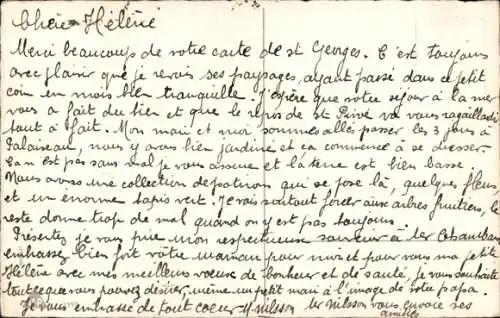 Chère Hélène
Merci beaucoup de votre carte de St Georges. C'est toujours
avec plaisir que je revois ses paysages, ayant passé dans ce petit
coin un mois bien tranquille. J'espère que votre séjour à la mer
vous a fait du bien et que le repos de St Privé va vous ragaillardir
tout à fait. Mon mari et moi sommes allés passer les 3 jours à
Palaiseau, nous y avons bien jardiné et ça commence à se dresser.
pas sans mal je vous assure et la terre est bien basse.
Nous avons une collection de qui se pose là, quelques fleurs
et un énorme tapis vert. Je vais surtout forcer aux arbres fruitiers, le
reste donne trop de mal quand on y est pas toujours.
Présentez je vous prie mon respectueux souvenir à Mr
embrassez bien fort votre maman pour moi et pour vous ma petite
Hélène avec mes meilleurs voeux de bonheur et de santé, je vous souhaite
tout ce que vous pouvez désirer, même un petit mari à l'image de votre papa.
Je vous embrasse de tout coeur M Nilsson Mr Nilsson vous envoie ses
amitiés